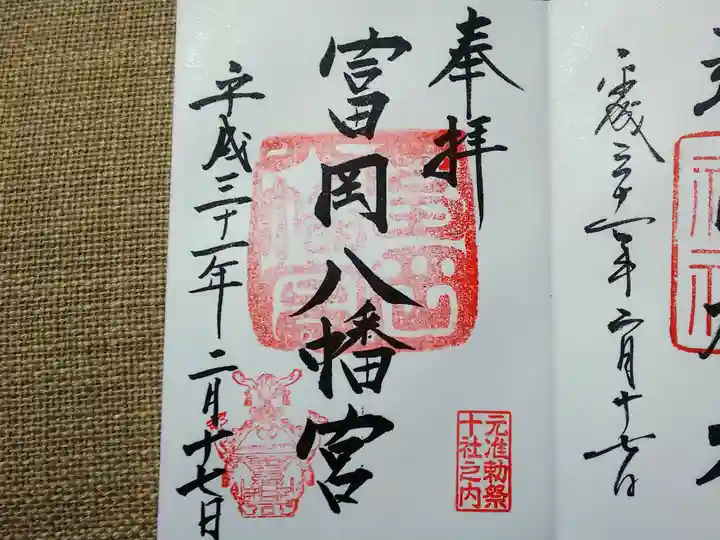 平成三十一年二月十七日
奉拝
富岡八幡宮
平成三十一年二月十七日
元准勅祭
十社之内